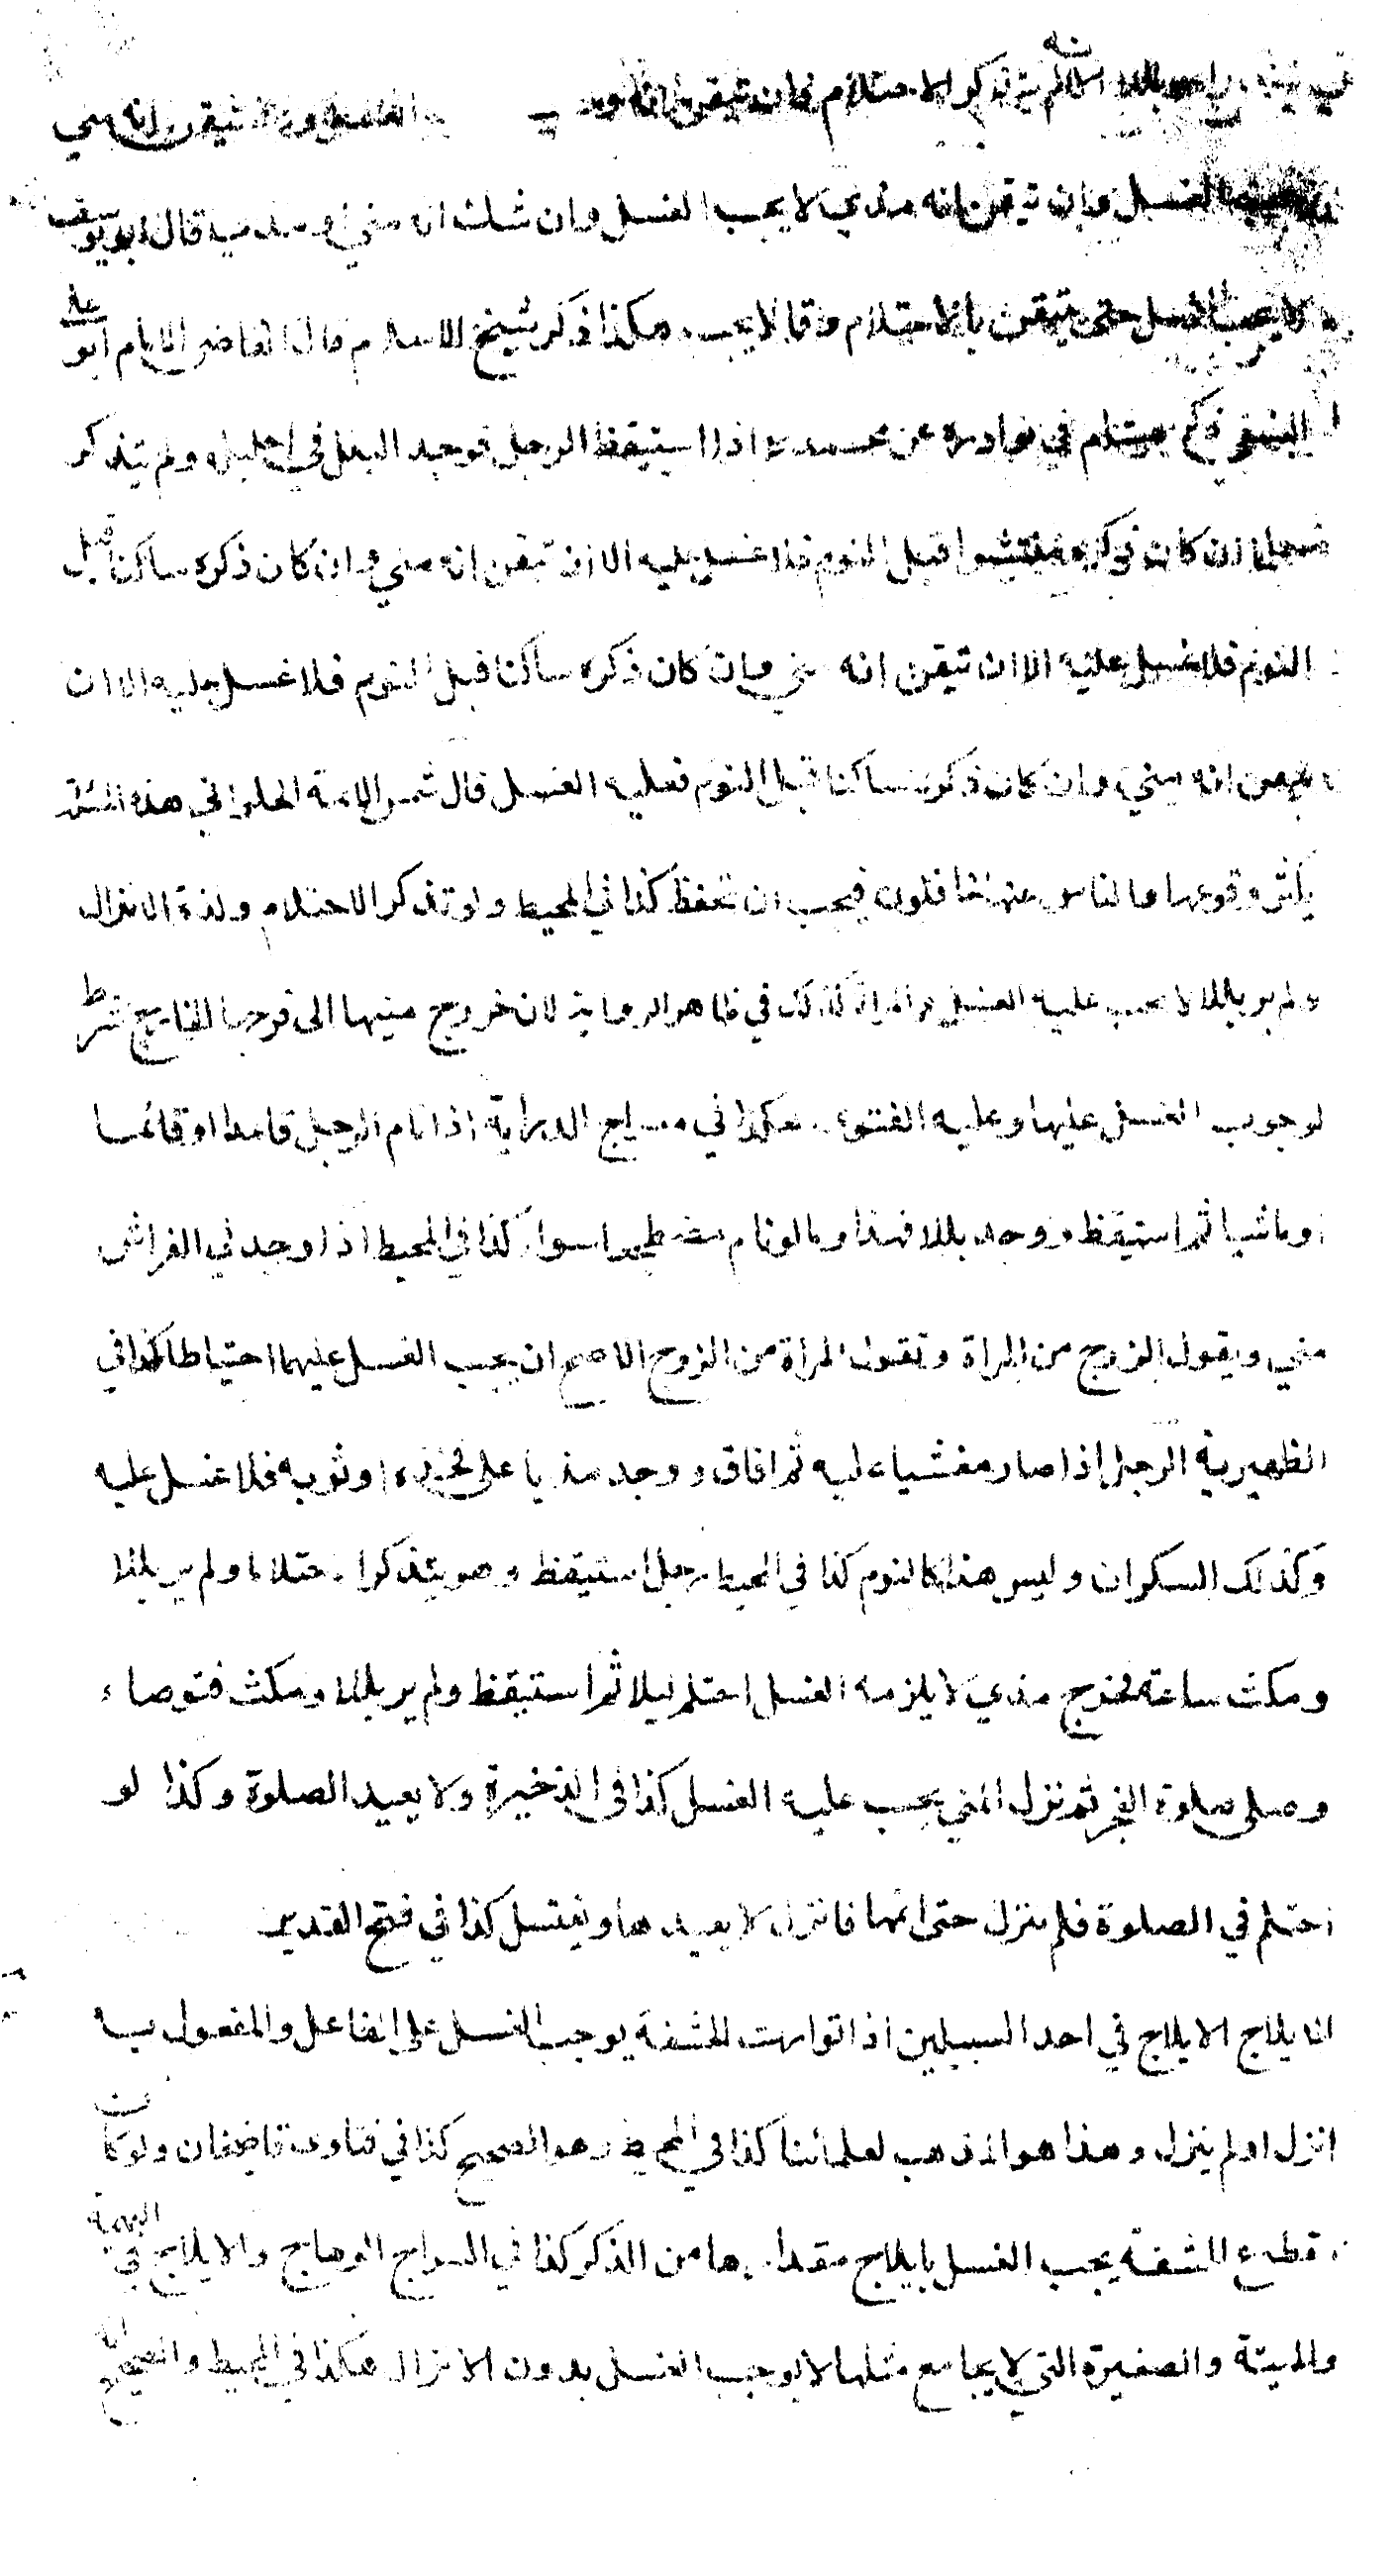 بللا الا انه لم يتذكر الاحتلام فان تيقن انه ودي لا يجب الغسل وان تيقن انه مني
يجب الغسل وان تيقن انه مذي لا يجب الغسل وان شك انه مني او مذي قال ابو يوسف
لا يجب الغسل حتى يتيقن بالاحتلام وقالا يجب هكذا ذكر شيخ الاسلام قال القاضي الامام ابو علي
النسفي ذكر هشام في نوادره عن محمد اذا استيقظ الرجل فوجد البلل في احليله ولم يتذكر
حلما ان كان ذكره منتشرا قبل النوم فلا غسل عليه الا ان تيقن انه مني وان كان ذكره ساكنا قبل
النوم فلا غسل عليه الا ان تيقن انه مني وان كان ذكره ساكنا قبل النوم فلا غسل عليه الا ان
تيقن انه مني وان كان ذكره ساكنا قبل النوم فعليه الغسل قال شمس الائمة الحلواني هذه المسئلة
يكثر وقوعها والناس عنها غافلون فيجب ان تحفظ كذا في المحيط ولو تذكر الاحتلام ولذة الانزال
ولم ير بللا لا يجب عليه الغسل والمراة كذلك في ظاهر الرواية لان خروج منيها الى فرجها الخارج شرط
لوجوب الغسل عليها وعليه الفتوى هكذا في معراج الدراية اذا نام الرجل قاعدا او قائما
او ماشيا ثم استيقظ ووجد بللا فهذا وما لو نام مضطجعا سواء كذا في المحيط اذا وجد في الفراش
مني ويقول الزوج من المراة وتقول المراة من الزوج الاصح ان يجب الغسل عليهما احتياطا كذا في
الظهيرية الرجل اذا صار مغشيا عليه ثم افاق ووجد مذيا على فخذه او ثوبه فلا غسل عليه
وكذلك السكران وليس هذا كالنوم كذا في المحيط رجل استيقظ وهو يتذكر احتلاما ولم ير بللا
ومكث ساعة فخرج مذي لا يلزمه الغسل احتلم ليلا ثم استيقظ ولم ير بللا ومكث فتوضاء
وصلى صلوة الفجر ثم نزل المني يجب عليه الغسل كذا في الذخيرة ولا يعيد الصلوة وكذا لو
احتلم في الصلوة فلم ينزل حتى اتمها فانزل لا يعيدها ويغتسل كذا في فتح القدير
الايلاج الايلاج في احد السبيلين اذا توارت الحشفة يوجب الغسل على الفاعل والمفعول به
انزل او لم ينزل وهذا هو المذهب لعلمائنا كذا في المحيط وهو الصحيح كذا في فتاوى قاضيخان ولو كان
مقطوع الحشفة يجب الغسل بايلاج مقدارها من الذكر كذا في السراج الوهاج والايلاج في البهيمة
والميتة والصغيرة التي لا يجامع مثلها لا يوجب الغسل بدون الانزال هكذا في المحيط والصحيح انه